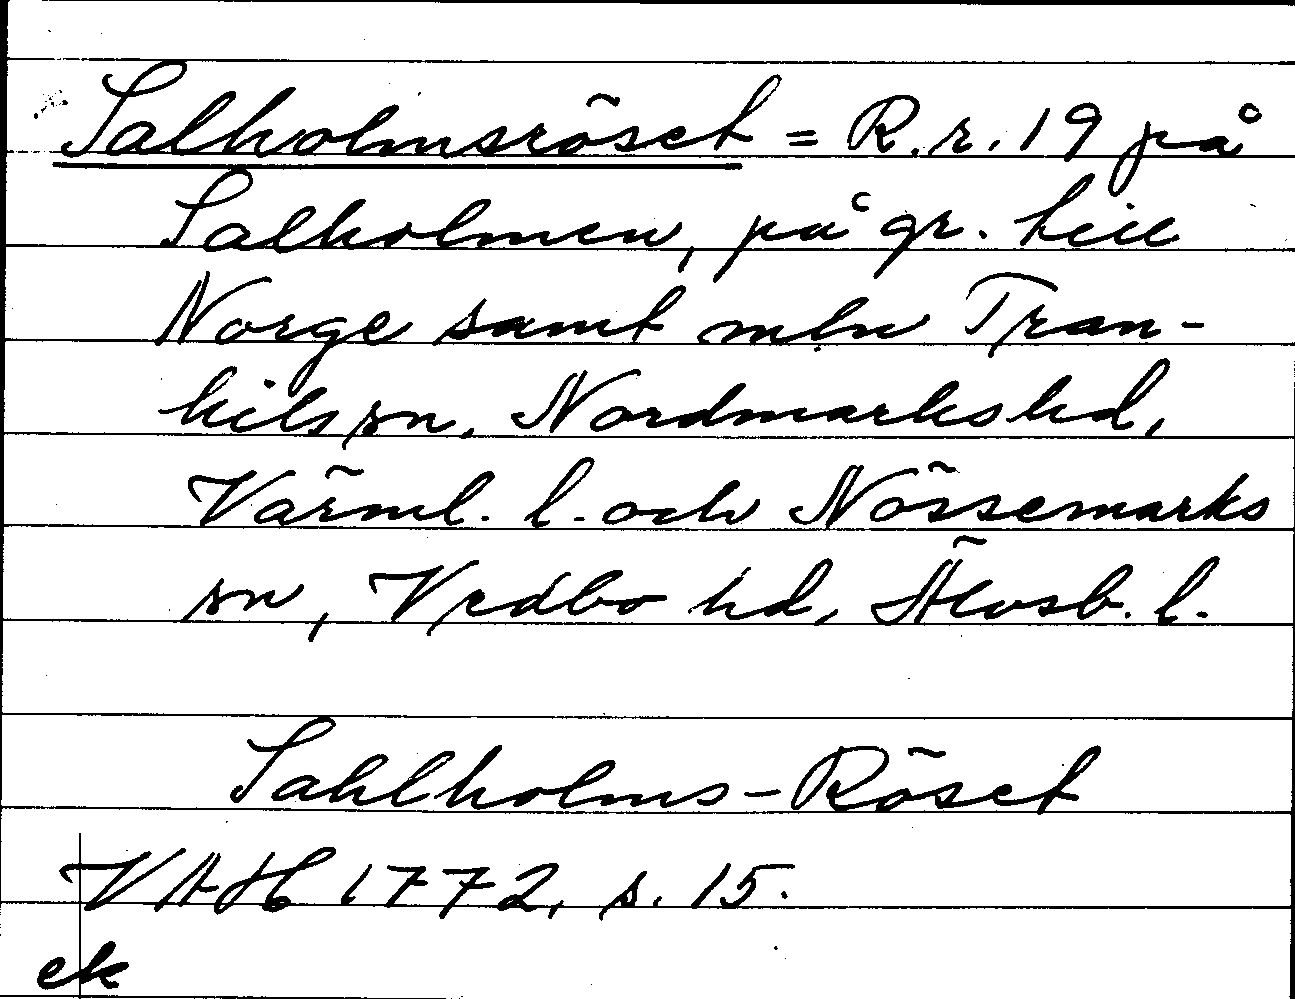 Salholmsröset = R.r. 19 på
Salholmen, på gr. till
Norge samt mln Tran-
kils sn, Nordmarks hd,
Värml. l. och Nössemarks
sn, Vedbo hd, Älvsb. l.
Sahlholms-Röset
VAH 1772, s. 15.
ek